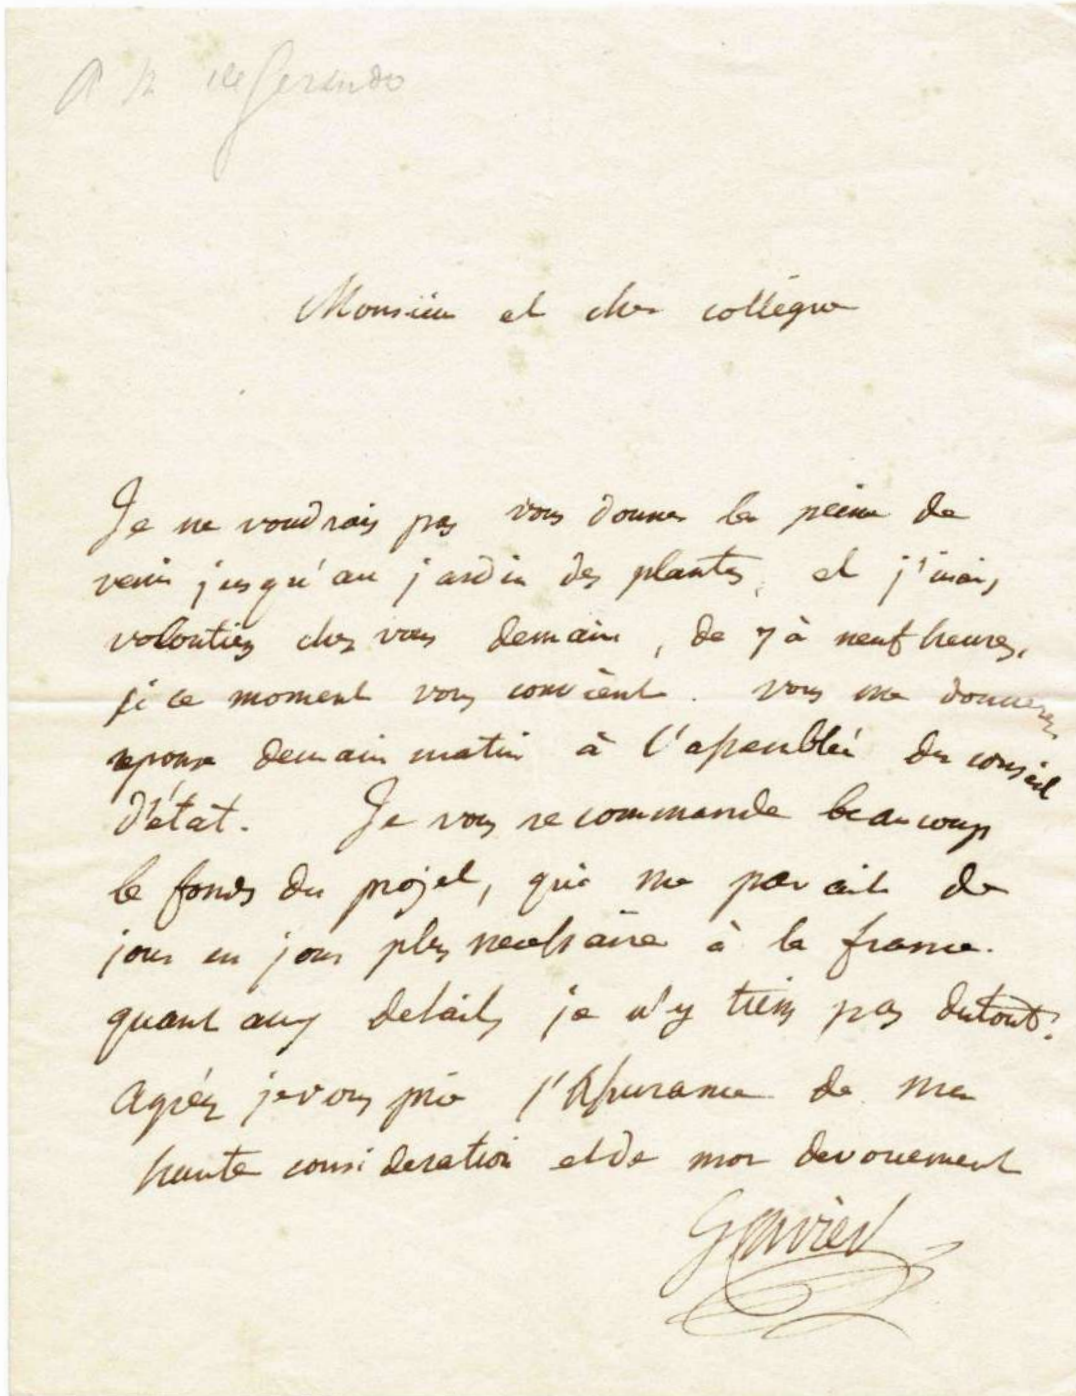 A M de Gerando
Monsieur et cher collègue
Je ne voudrais pas vous donner la peine de
venir jusqu'au jardin des plantes, et j'irais
volontiers chez vous demain, de 7 à neuf heures,
si ce moment vous convient. vous me donnerez
reponse demain matin à l'assemblée du conseil
d'état. Je vous recommande beaucoup
le fonds du projet, qui me parait de
jour en jour plus necessaire à la france.
quant aux details je n'y tiens pas dutout.
agréez je vous prie l'assurance de ma
haute consideration et de mon devouement
G Cuvier